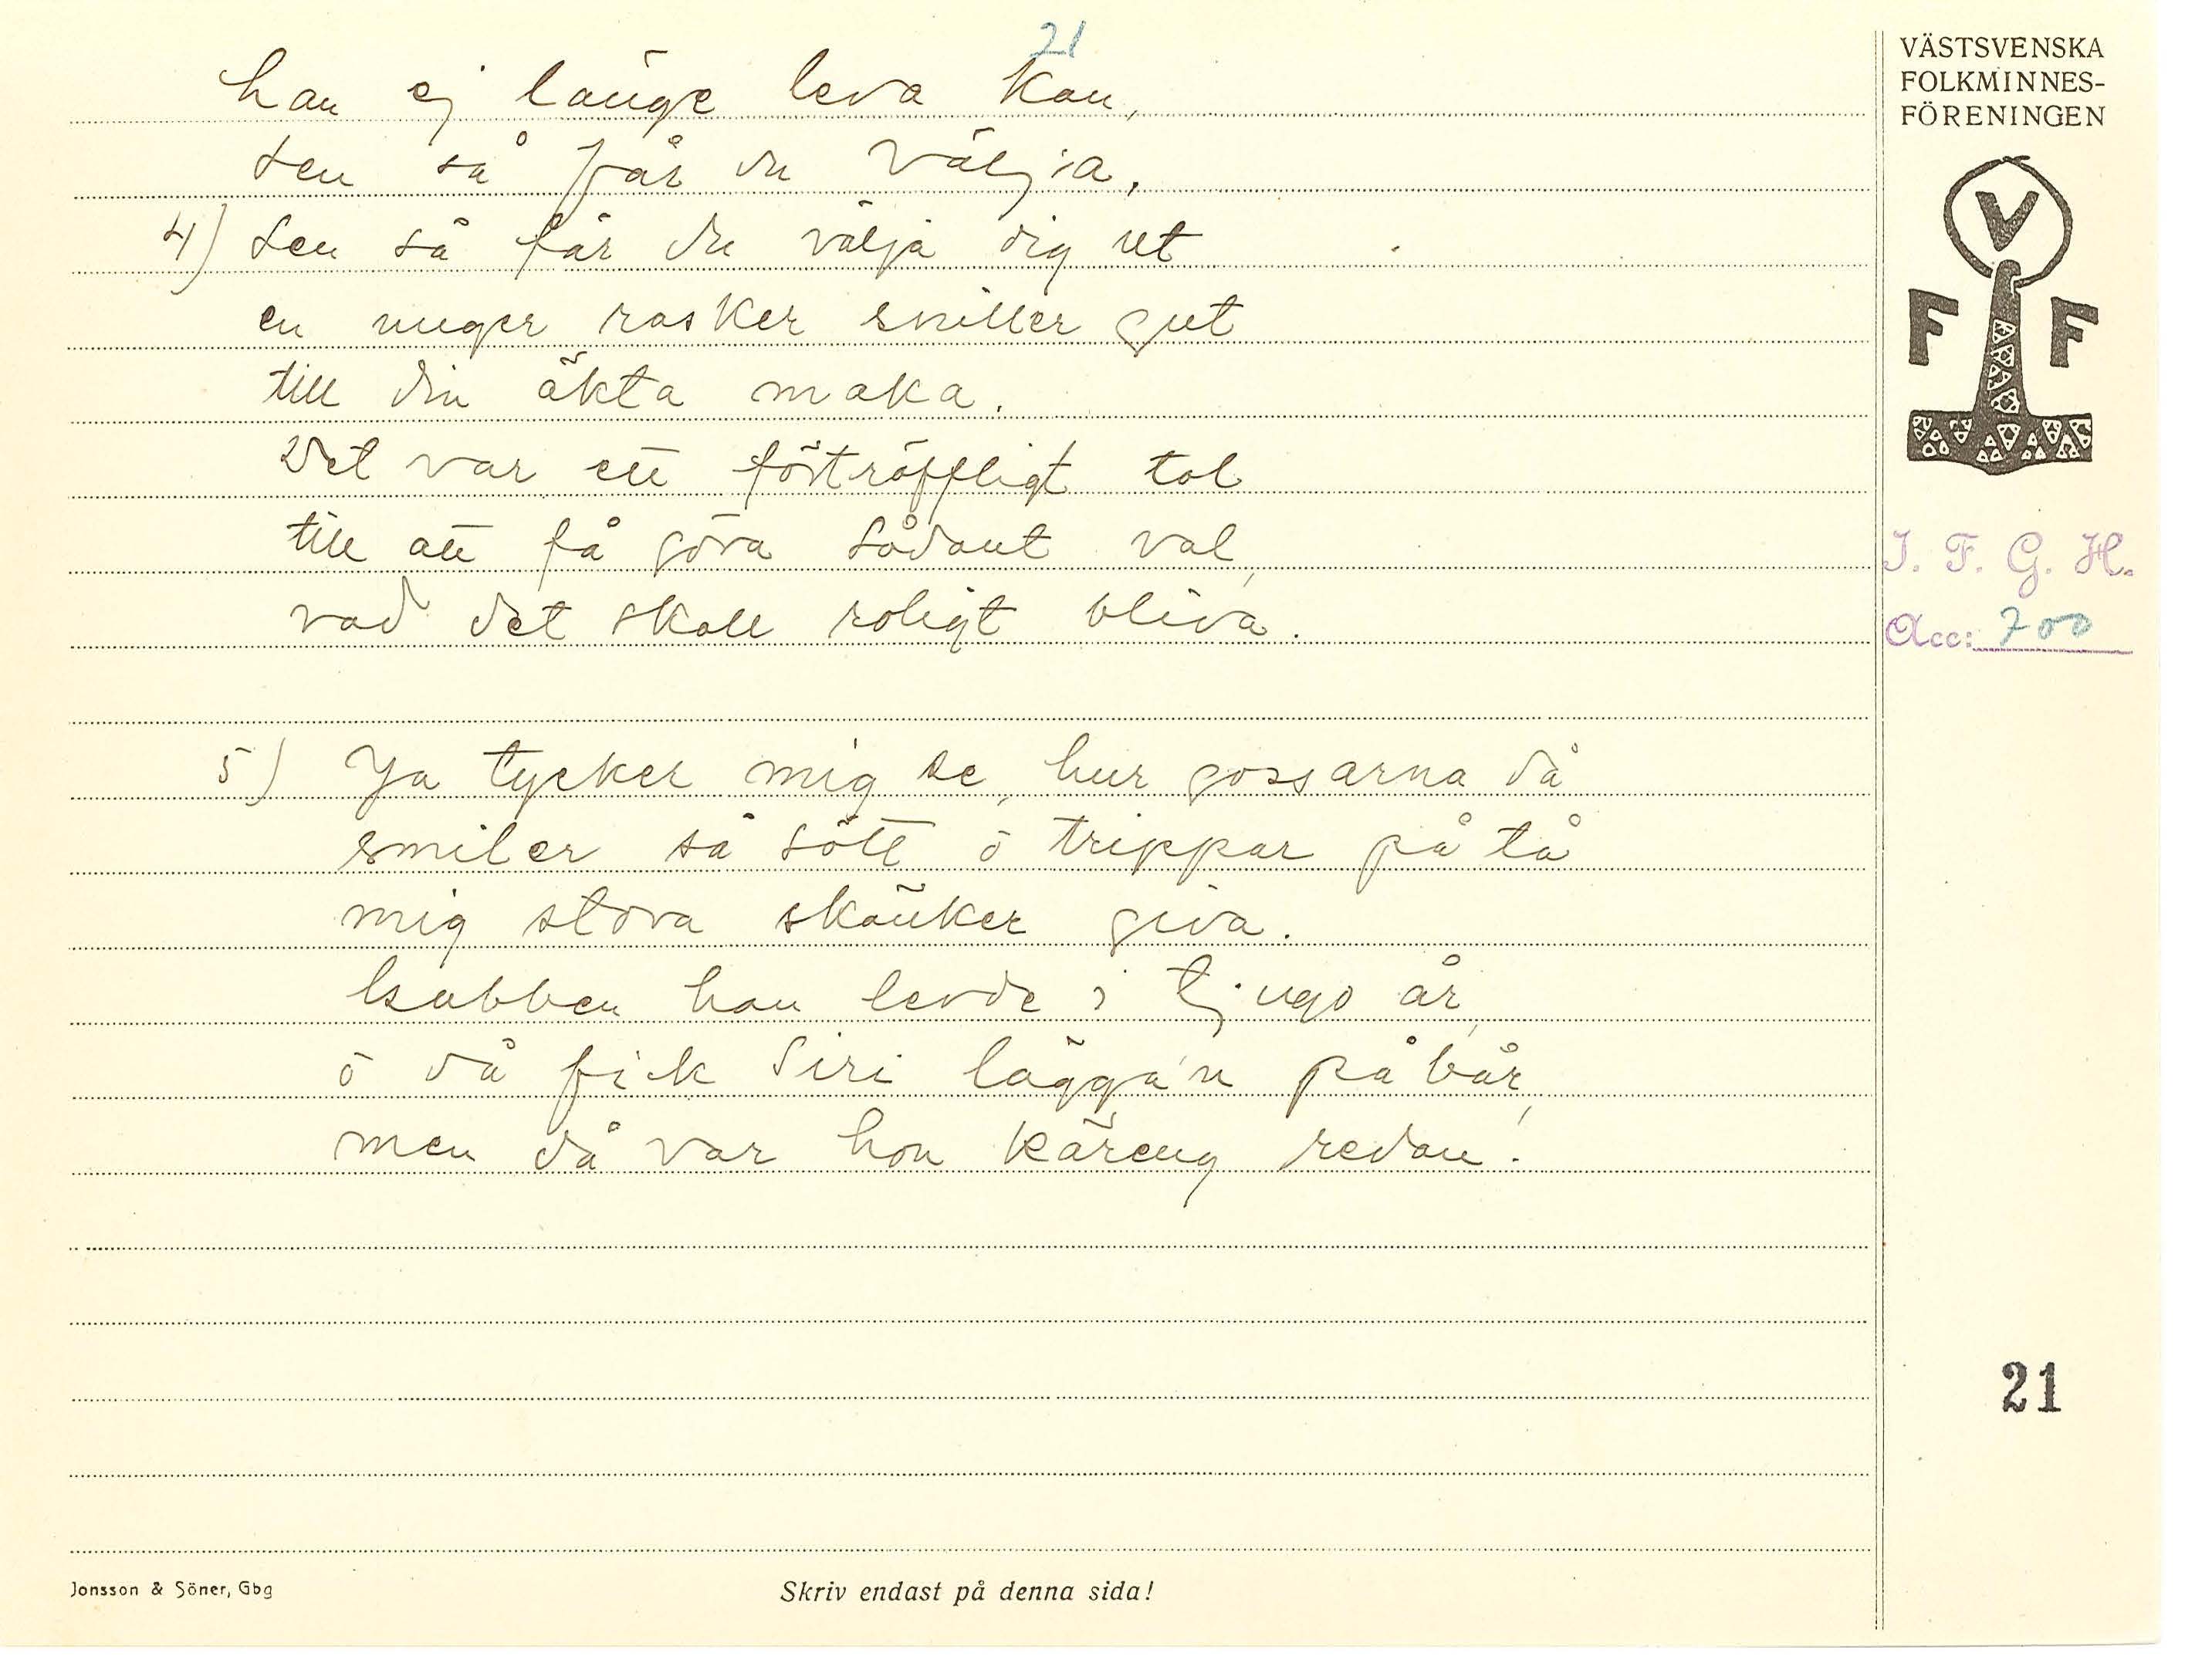 21
han ej länge leva kan,
sen så får du välja.
4) sen så får du välja dig ut
en unger rasker sniller gut
till din äkta maka.
Det var ett förträffligt tal
till att få göra sådant val,
vad det skall roligt bliva.
5) Ja tycker mig se, hur gossarna då
smiler så sött ö trippar på tå
mig stora skänker giva.
Gubben han levde i tjugo år,
ö då fick Siri lägga'n på bår,
men då var hon käreng redan.
VÄSTSVENSKA
FOLKMINNES-
FÖRENINGEN
V
F F
I. F. G. H.
Acc: 700
21
Jonsson & Söner, Gbg
Skriv endast på denna sida!